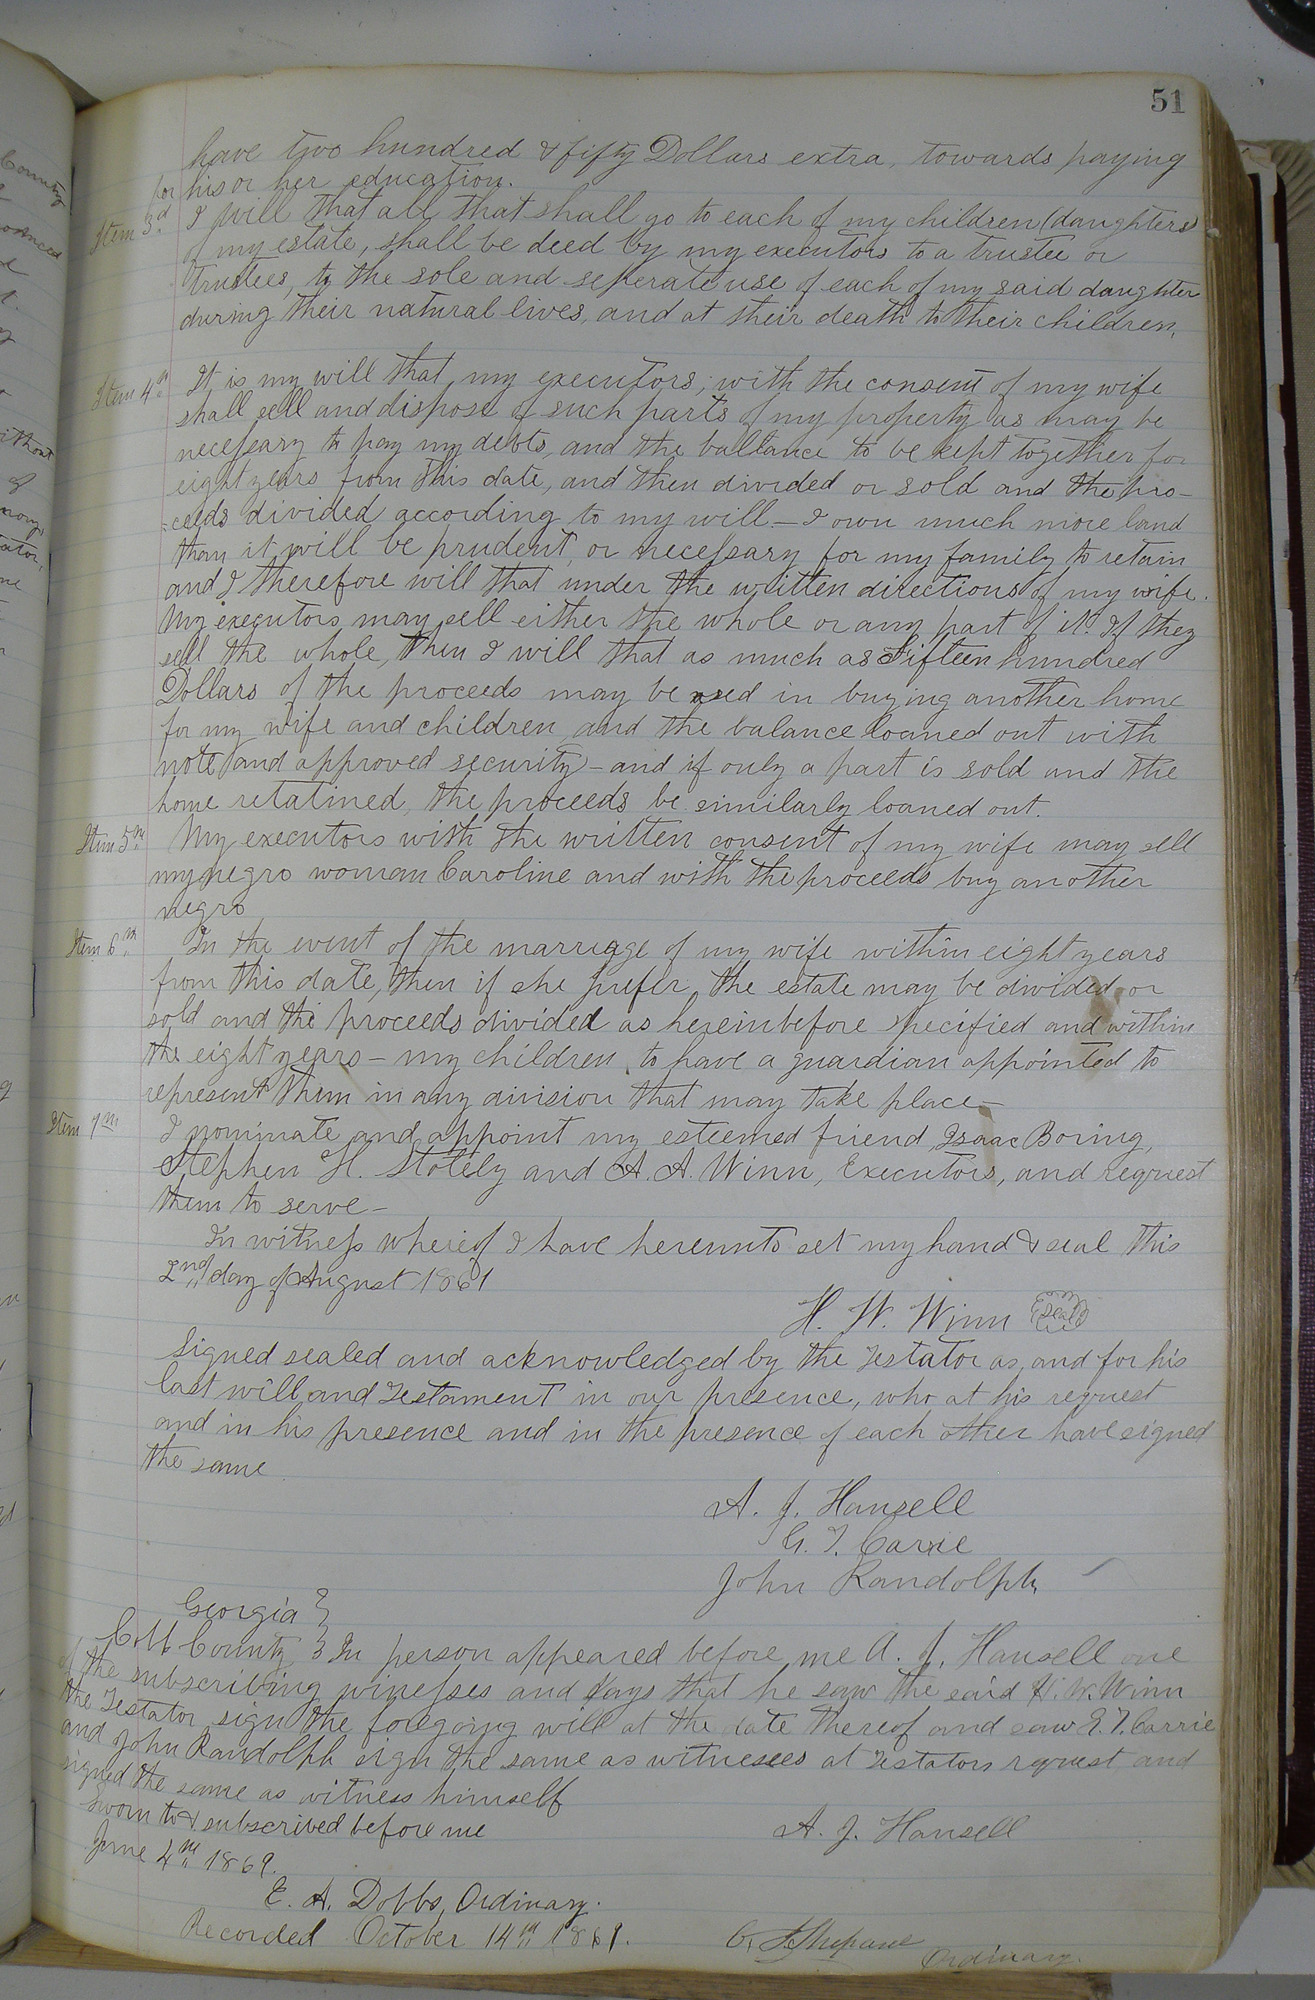 51
have two hundred & fifty Dollars extra, towards paying
for his or her education.
Item 3d I will that all that shall go to each of my children (daughters)
of my estate, shall be deed by my executors to a trustee or
trustees, to the sole and seperate use of each of my said daughter
during their natural lives, and at their death to their children,
Item 4th It is my will that my executors, with the consent of my wife
shall sell and dispose of such parts of my property as may be
necessary to pay my debts, and the ballance to be kept together for
eight years from this date, and then divided or sold and the pro-
=ceeds divided according to my will - I own much more land
than it will be prudent or necessary for my family to retain
and I therefore will that under the written directions of my wife.
My executors may sell either the whole or any part of it. If they
sell the whole, then I will that as much as Fifteen hundred
Dollars of the proceeds may be used in buying another home
for my wife and children and the balance loaned out with
note and approved security - and if only a part is sold and the
home retatined, the proceeds be similarly loaned out.
Item 5th My executors with the written consent of my wife may sell
my negro woman Caroline and with the proceeds buy another
negro
Item 6th In the event of the marriage of my wife within eight years
from this date, then if she prefer, the estate may be divided or
sold and the proceeds divided as hereinbefore specified and within
the eight years - my children to have a guardian appointed to
represent them in any division that may take place -
Item 7th I nominate and appoint my esteemed friend Isaac Boring,
Stephen H. Stotely and A. A. Winn, Executors, and request
them to serve -
In witness whereof I have hereunto set my hand & seal this
2nd day of August 1861
H. W. Winn Seal
Signed sealed and acknowledged by the Testator as, and for his
last will and Testament in our presence, who at his request
and in his presence and in the presence of each other have signed
the same
A. J. Hansell
G. T. Carrie
John Randolph
Georgia }
Cobb County } In person appeared before me A. J. Hansell one
of the subscribing winesses and says that he saw the said H. W. Winn
the Testator sign the foregoing will at the date thereof and saw G. T. Carrie
and John Randolph sign the same as witnesses at Testators request and
signed the same as witness himself
Sworn to & subscribed before me
A. J. Hansell
June 4th 1869.
E. A. Dobbs, Ordinary.
Recorded October 14th 1869.
Ordinary.